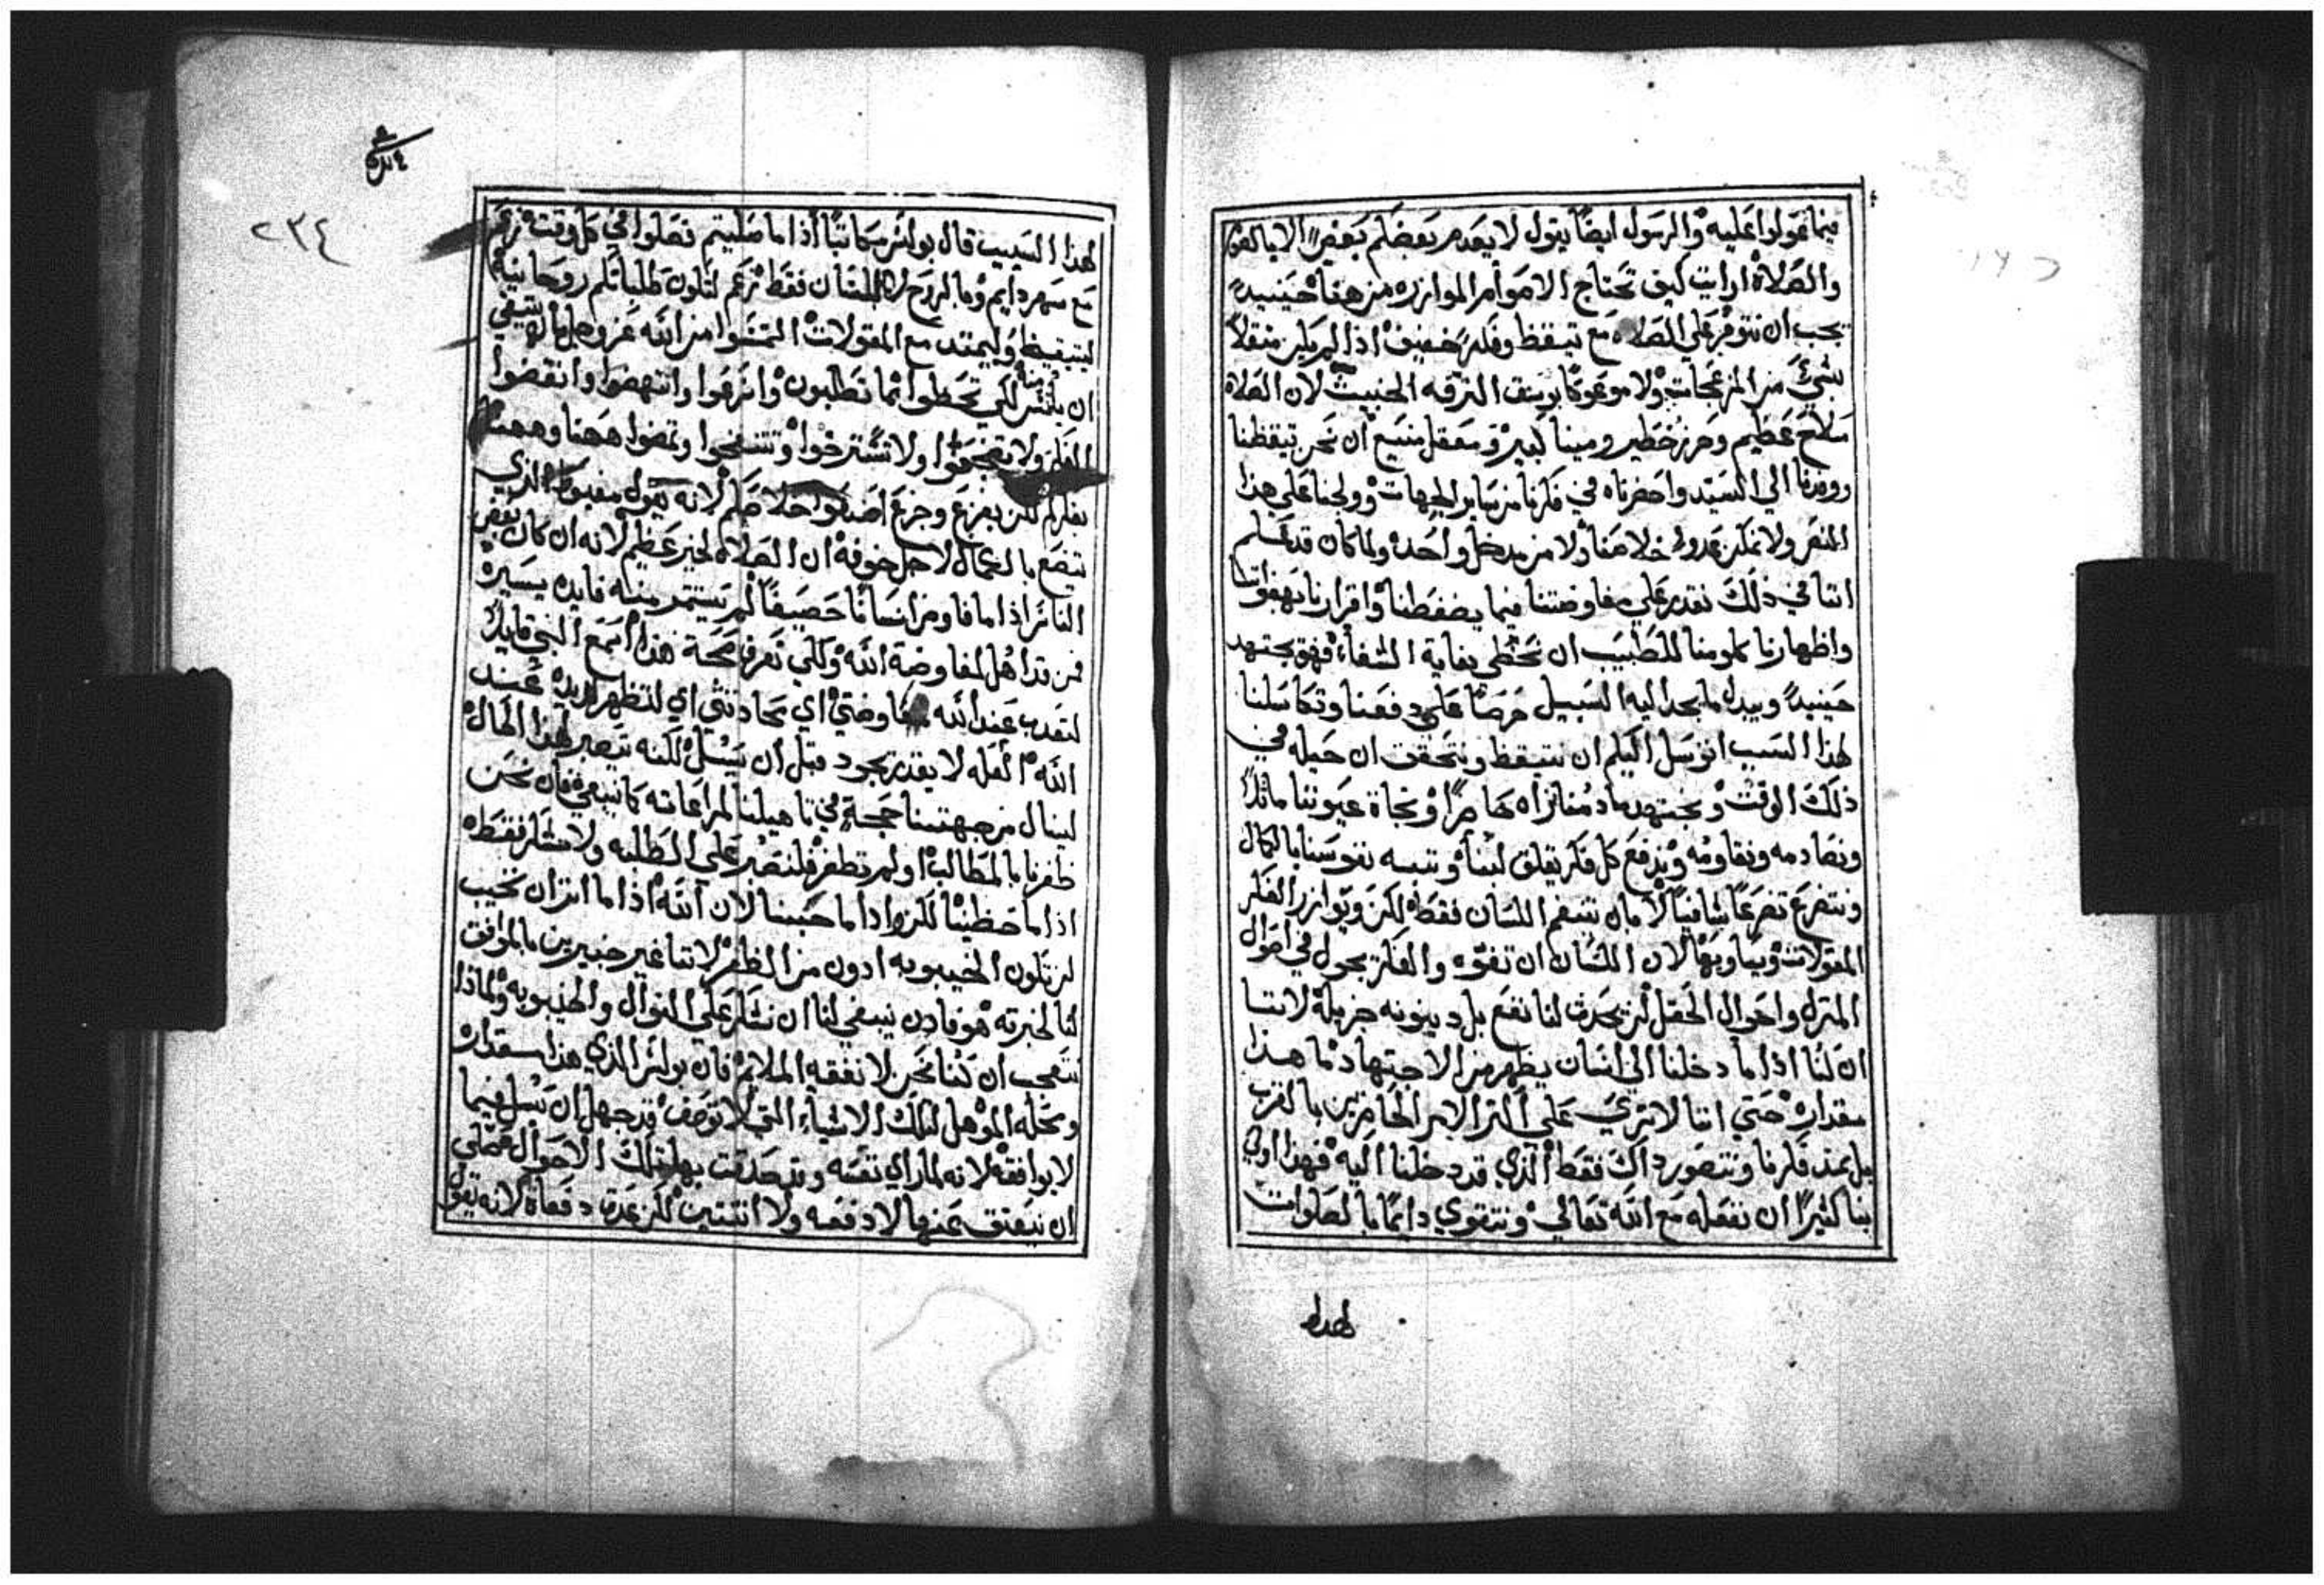 فيما عولوا عليه والرسول ايضاً يقول لا يعدم بعضكم بعض الا بالصوم
والصلاة ارايت كيف تحتاج الامور الموازره من هنا حينيدٍ
يجب ان نتوفر على الصلاه مع تيقظ وفكر خفيف اذا لم يكن مثقلاً
بشيء من المزعجات ولا موعوكاً بوسق الترفه الخبيث لان الصلاة
سلاح عظيم وحرز خطير ومينا كبير ومعقل منيع ان نحن تيقظنا
ورودنا الي السيد واحضرناه في فكرنا من ساير الجهات وولجنا على هذا
ولا نمكن عدو خلاصنا ولا من مدخل واحده ولما كان قد علم
اننا في ذلك نقدر على مفاوضتنا فيما يضغطنا واقرارنا بهفواتنا
واظهارنا كلومنا للطبيب ان نحظي بغاية الشفاء فهو يجتهد
حينيدٍ ويبدل ما يجد اليه السبيل حرصاً على دفعنا وتكاسلنا
لهذا السبب اتوسل اليكم ان نتيقظ ونتحقق ان حيله في
ذلك الوقت ونجتهد مادمنا نراه حاضراً ونجاة عيوننا ماثلاً
ونصادمه ونقاومه وندفع كل فكر يقلق لبنا وننبه نفوسنا بالكمال
ونتضرع تضرعاً شافياً لا مال ننغم اللسان فقط لكن ويوازر الفكر
المقولات ويساويها لان اللسان ان تفوه والفكر يجول في احوال
المنزل واحوال الحقل لن يحدث لنا نفع بل دينونه جزيلة لاننا
ان كنا اذا ما دخلنا الي انسان يظهر من الاجتهاد ما هذا
مقداره حتي اننا لا نري على اكثر الامر الحاضرين بالقرب
بل يمتد فكرنا ونتصور ذاك فقط الذي قد دخلنا اليه فهذا اولي
بنا كثيراً ان نفعله مع الله تعالي ونتقوي دايماً بالصلوات
لهذا
٢٣٤
لهذا السبب قال بولس كاتباً اذا ما صليتم فصلوا في كل وقت زعم
مع سهر دايم وما بالروح لا اللسان فقط زعم لتكون طلباتكم روحانية
ليتيقظ وليمتد مع المقولات التمسوا من الله عز وجل ما ينبغي
ان يلتمس لكي تحظوا بما تطلبون وانزعوا وانتهضوا وانفضوا
الفكر ولا تضجعوا ولا تسترخوا وتتفسحوا وتمضوا ههنا وههنا
بفكركم لكن بفزع وجزع اصنعوا خلاصكم لانه يقول مغبوط الذي
يتضع بالكمال لاجل خوفه ان الصلاه لخير عظيم لانه ان كان بعض
الناس اذا ما فاوض انساناً حصيفاً لم يستثمر منه فايده يسيره
فمن قد اهل لمفاوضة الله ولكي نعرف صحة هذا اسمع النبي قايلاً
لتعذب عند الله مفاوضتي اي محادثتي اي لتظهر لذيذه عند
الله العله لا يقدر يجود قبل ان يسئل لكنه يصبر لهذا الحال
لينال من جهتنا حجة في تاهيلنا لمراعاته كما ينبغي فان نحن
ظفرنا بالمطالب او لم نظفر فلنصر على الطلبه ولا نشكر فقط
اذا ما حظينا لكن واذا ما خبنا لان الله اذا ما اثر ان نخيب
لن تكون الخيبوبه ادون من الظفر لاننا غير خبيرين بالموافق
لنا كخبرته هو فاذن ينبغي لنا ان نشكر على النوال والخيبوبه ولماذا
نتعجب ان كنا نحن لا نفقه الملايم فان بولس الذي هذا مقداره
ومحله الموهل لتلك الاشياء التي لا توصف قد جهل ان يسل فيما
لا يوافقه لانه لما راي نفسه وقد حدقت بها تلك الاحوال صلي
ان يعتق عنها لا دفعه ولا اثنتين لكن عدة دفعات لانه يقول